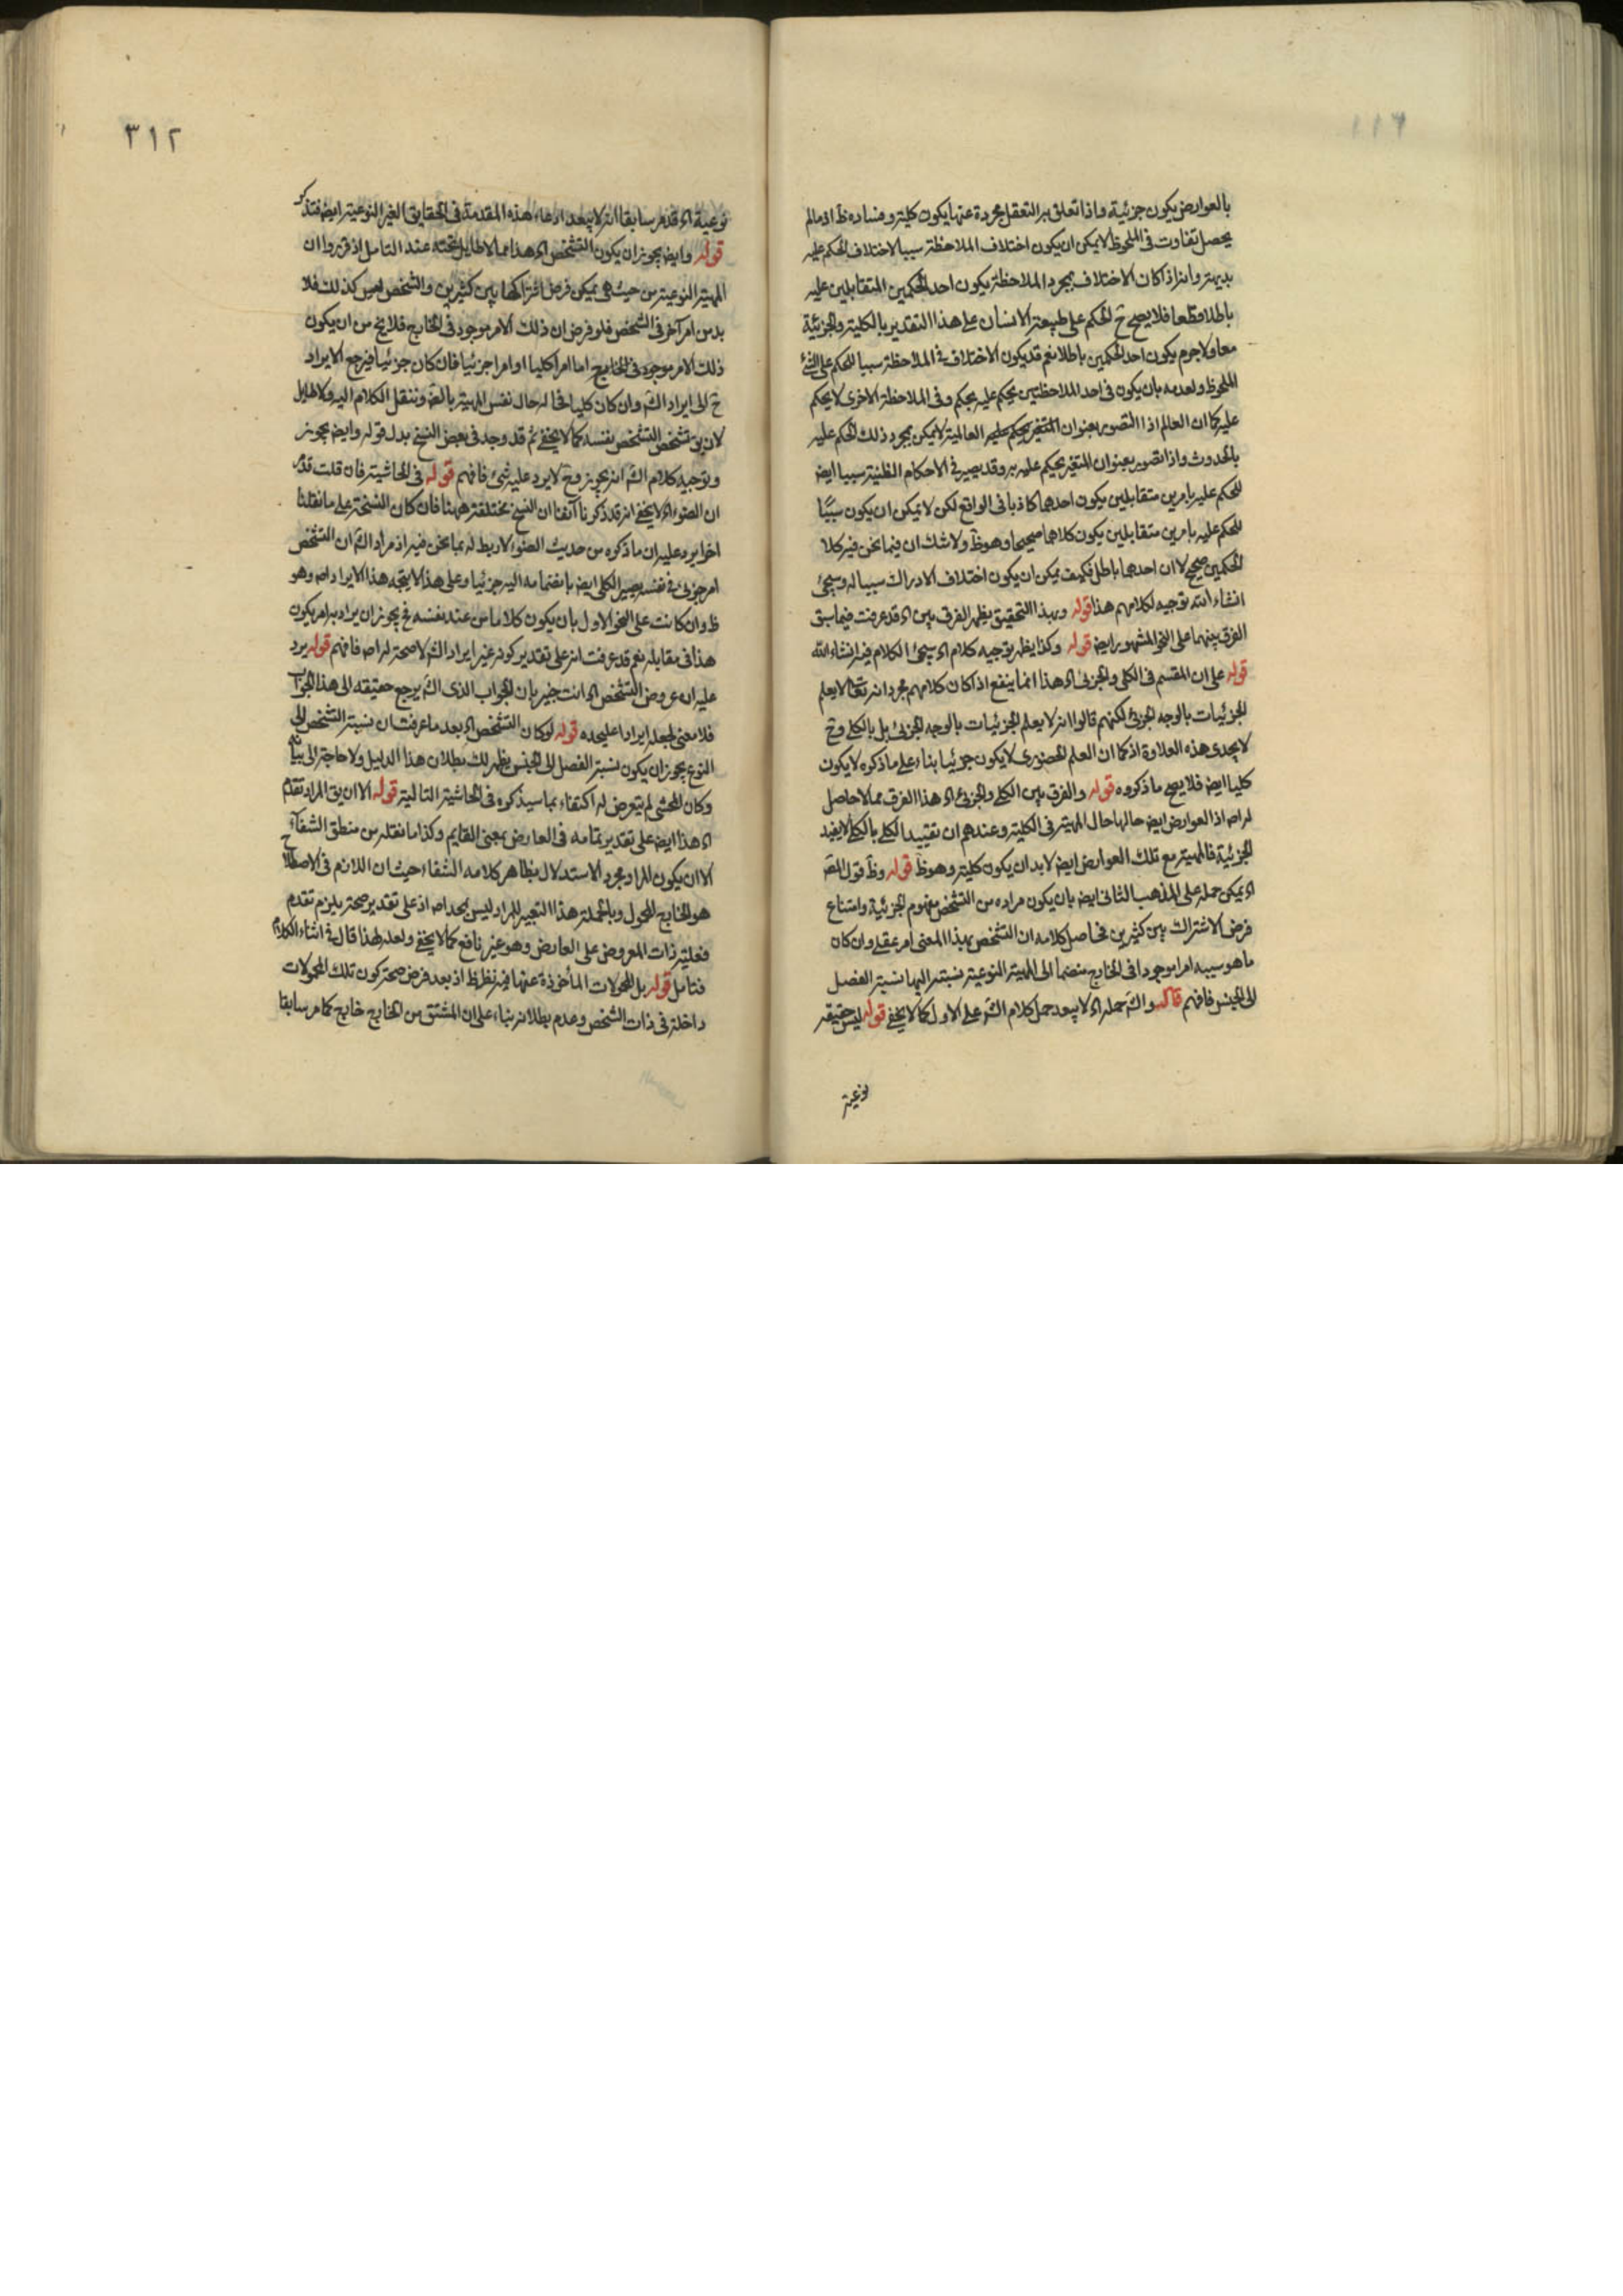 بالعوارض يكون جزئية واذا تعلق به التعقل مجردة عنها يكون كلية وفساده ظ اذ مالم
يحصل تفاوت فى الملحوظ لا يمكن ان يكون اختلاف الملاحظة سببا لاختلاف الحكم عليه
بديهة وانه اذا كان الاختلاف بمجرد الملاحظة يكون احد الحكمين المتقابلين عليه
باطلا وقطعا فلا يصح ح الحكم على طبيعة الانسان على هذا التقدير بالكلية والجزئية
معا ولا جرم يكون احد الحكمين باطلا نعم قد يكون الاختلاف فى الملاحظة سببا للحكم على الشئ
الملحوظ ولعدمه بان يكون فى احد الملاحظتين يحكم عليه بحكم وفى الملاحظة الاخرى لا يحكم
عليه كما ان العالم اذا التصور بعنوان المتغير يحكم عليه العالمية لا يمكن بمجرد ذلك الحكم عليه
بالحدوث واذا تصور بعنوان المتغير يحكم عليه به وقد يصير فى الاحكام الظنية سببا ايض
للحكم عليه بامرين متقابلين يكون احدهما كاذبا فى الواقع لكن لا يمكن ان يكون سببا
للحكم عليه بامرين متقابلين يكون كلاهما صحيحا وهو ظ ولا شك ان فيما نحن فيه كلا
الحكمين صحيح لا ان احدهما باطل فكيف يمكن ان يكون اختلاف الادراك سببا له وسيجئ
انشاء الله توجيه لكلامهم هذا قوله وبهذا التحقيق يظهر الفرق بين اه قد عرفت فيما سبق
الفرق بينهما على النحو المشهور ايض قوله وكذا يظهر توجيه كلام اه سيجئ الكلام فيه انشاء الله
قوله على ان المقسم فى الكلى والجزئى اه هذا انما ينفع اذا كان كلامهم مجرد انه تعالى لا يعلم
الجزئيات بالوجه الجزئى لكنهم قالوا انه لا يعلم الجزئيات بالوجه الجزئى بل بالكلى وح
لا يجدى هذه العلاوة اذ كما ان العلم الحضورى لا يكون جزئيا بناء على ما ذكروه لا يكون
كليا ايض فلا يصح ما ذكروه قوله والفرق بين الكلى والجزئى اه هذا الفرق مما لا حاصل
له اص اذ العوارض ايض حالها حال المهية فى الكلية وعندهم ان تقييد الكلى بالكلى لا يفيد
الجزئية فالمهية مع تلك العوارض ايض لا بد ان يكون كلية وهو ظ قوله وظ قول المص
اه يمكن حمله على المذهب الثانى ايض بان يكون مراده من التشخص مفهوم الجزئية وامتناع
فرض الاشتراك بين كثيرين فحاصل كلامه ان التشخص بهذا المعنى امر عقلى وان كان
ما هو سببه امرا موجودا فى الخارج منضما الى المهية النوعية نسبته اليها نسبة الفصل
الى الجنس فافهم قال والش حمله اه لا يبعد حمل كلام الش على الاول كما لا يخفى قوله ليس حقيقة
نوعية
٣١٢
نوعية اه قد مر سابقا انه لا يبعد ادعاء هذه المقدمة فى الحقايق الغير النوعية ايض فتذكر
قوله وايض يجوز ان يكون التشخص اه هذا مما لا طايل تحته عند التامل اذ قرروا ان
المهية النوعية من حيث هى يمكن فرض اشتراكها بين كثيرين والشخص ليس كذلك فلا
بد من امر آخر فى الشخص فلو فرض ان ذلك الامر موجود فى الخارج فلا يخ من ان يكون
ذلك الامر موجود فى الخارج اما امرا كليا او امرا جزئيا فان كان جزئيا فيرجع الايراد
ح الى ايراد الش وان كان كليا فحاله حال نفس المهية بالضم وننقل الكلام اليه ولا طايل
لان يق تشخص التشخص بنفسه كما لا يخفى ثم قد وجد فى بعض النسخ بدل قوله وايض يجوز
وتوجيه كلام الش انه يجوز وح لا يرد عليه شئ فافهم قوله فى الحاشية فان قلت قد مر
ان الضوء اه لا يخفى انه قد ذكرنا آنفا ان النسخ مختلفة ههنا فان كان النسخة على ما نقلنا
اخرا يرد عليه ان ما ذكره من حديث الضوء لا ربط له بما نحن فيه اذ مراد الش ان التشخص
امر جزئى فى نفسه يصير الكلى ايض بانضمامه اليه جزئيا وعلى هذا لا يتجه هذا الايراد اص وهو
ظ وان كانت على النحو الاول بان يكون كلاما من عند نفسه فح يجوز ان يراد به امر يكون
هذا فى مقابله نعم قد عرفت انه على تقدير كونه غير ايراد الش لا صحة له اص فافهم قوله يرد
عليه ان عروض التشخص اه انت خبير بان الجواب الذى الش يرجع حقيقته الى هذا الجواب
فلا معنى لجعله ايرادا عليحده قوله لو كان التشخص اه بعد ما عرفت ان نسبة التشخص الى
النوع يجوز ان يكون نسبة الفصل الى الجنس يظهر لك بطلان هذا الدليل ولا حاجة الى بيانه
وكان المحشى لم يتعرض له اكتفاء بما سيذكره فى الحاشية التالية قوله الا ان يق المراد تقدم
اه هذا ايض على تقدير تمامه فى العارض بمعنى القايم وكذا ما نقله من منطق الشفاء
الا ان يكون المراد مجرد الاستدلال بظاهر كلامه الشفاء حيث ان اللازم فى الاصطلاح
هو الخارج المحمول وبالجملة هذا التعبير للمراد ليس بجد اص اذ على تقدير صحته يلزم تقدم
فعلية ذات المعروض على العارض وهو غير نافع كما لا يخفى ولعله لهذا قال فى اثناء الكلام
فتامل قوله بل المحمولات المأخوذة عنها فيه نظر ظ اذ بعد فرض صحة كون تلك المحمولات
داخلة فى ذات الشخص وعدم بطلانه بناء على ان المشتق من الخارج خارج كما مر سابقا